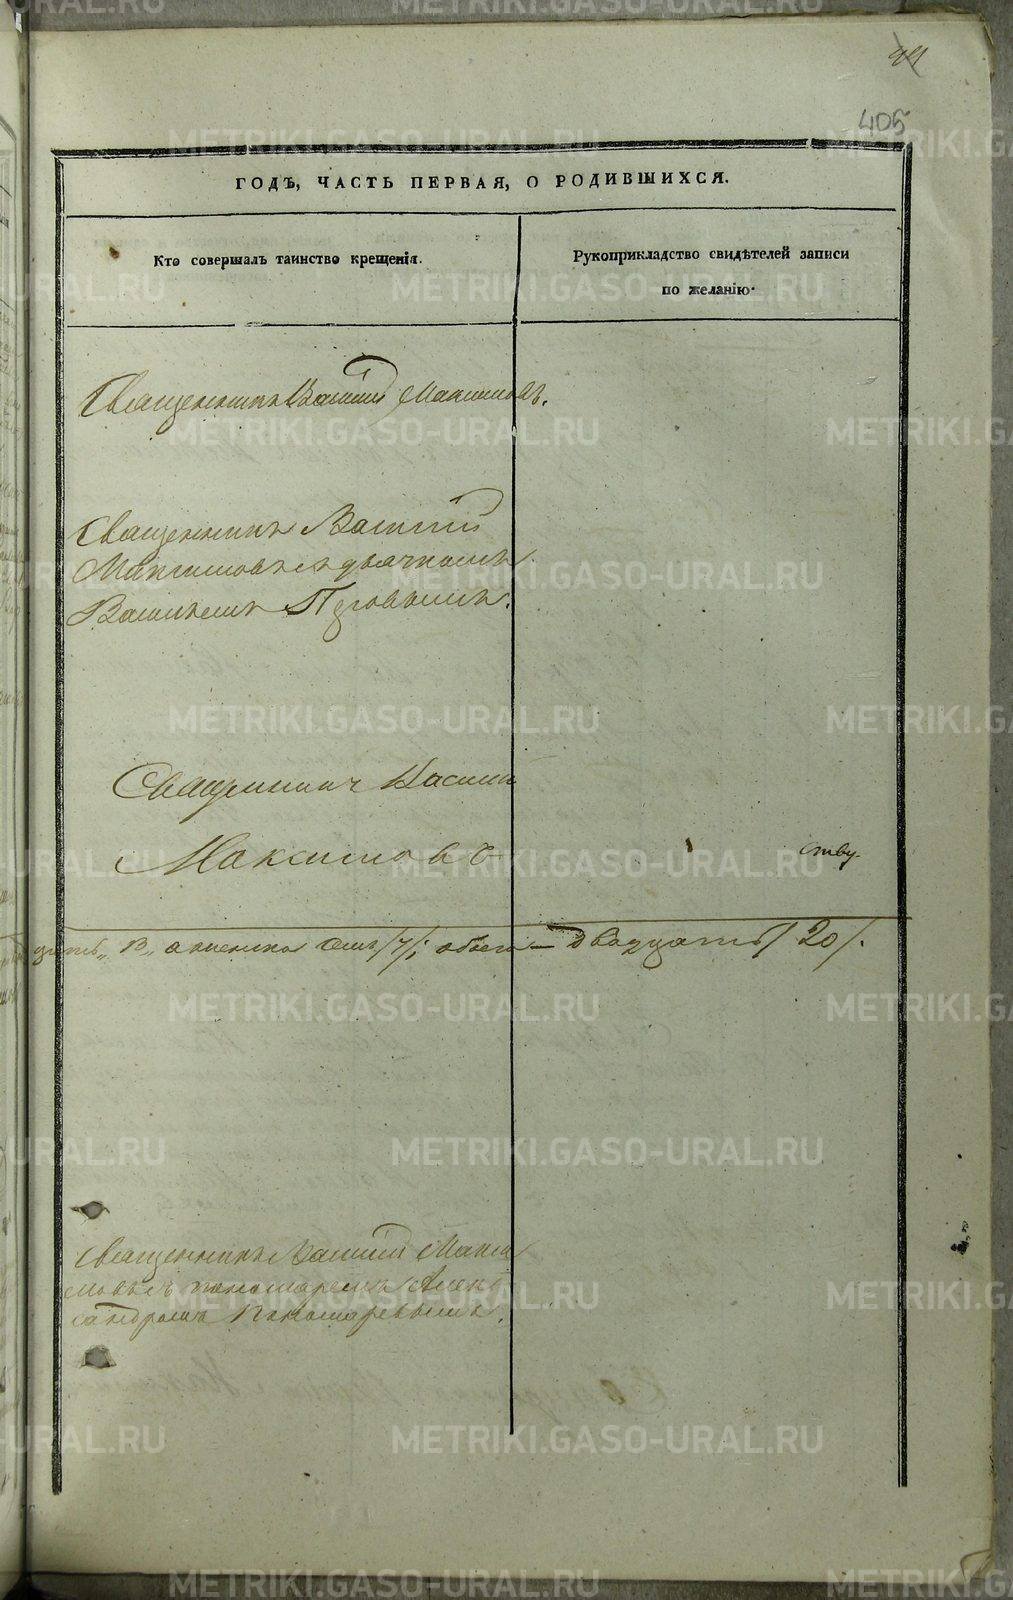 405
ГОДЪ, ЧАСТЬ ПЕРВАЯ, О РОДИВШИХСЯ.
Кто совершалъ таинство крещенія.
Рукоприкладство свидѣтелей записи
по желанію.
Священникъ Василій Максимовъ.
Священникъ Василій
Максимовъ съ дьячкомъ
Васильемъ
Священникъ Василій
Максимовъ
ству.
обоего двадцать /20/.
Священникъ Василій Макси
мовъ съ пономаремъ Алек
сандромъ Пономаревымъ.
METRIKI.GASO-URAL.RU